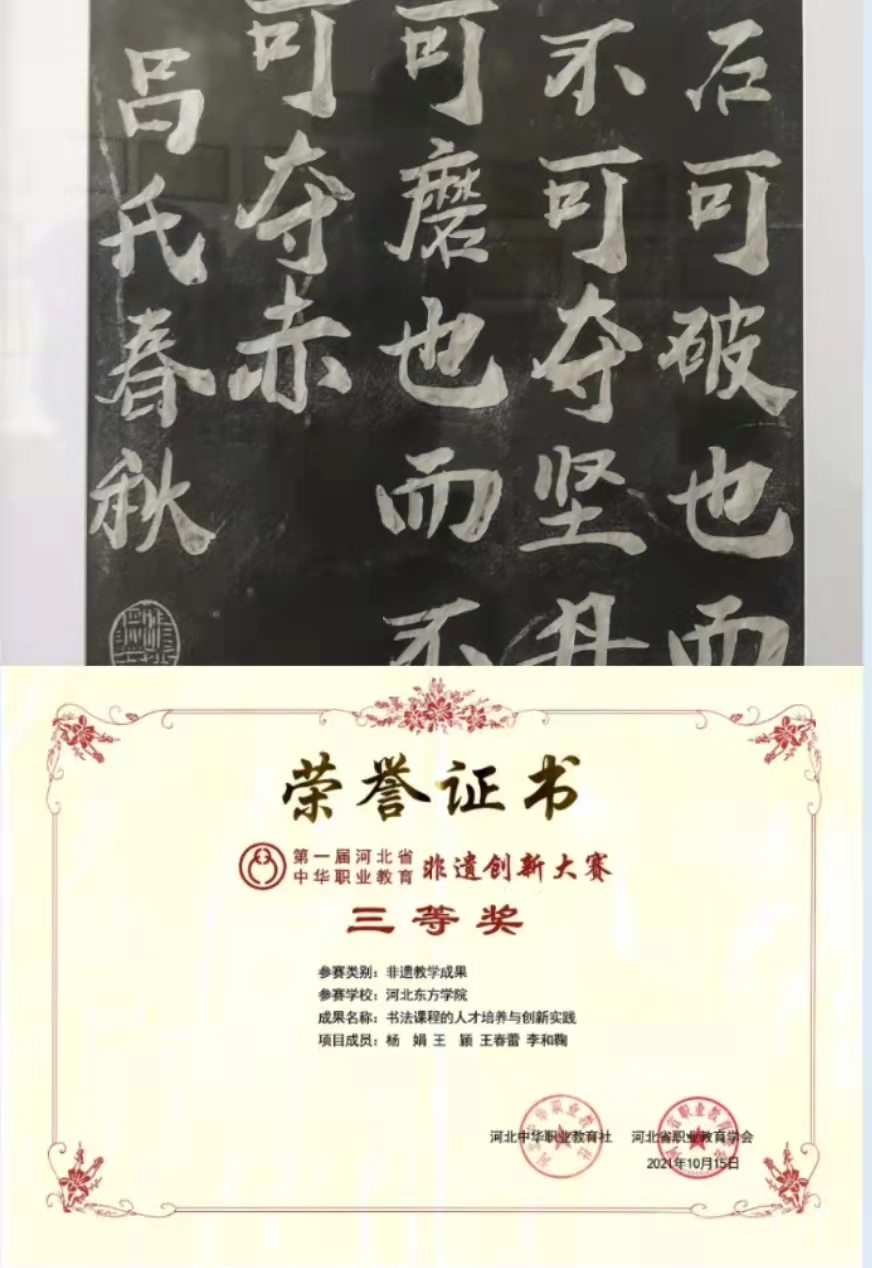 石可破也而
不可夺坚丹
可磨也而不
可夺赤
吕氏春秋
荣誉证书
第一届河北省
中华职业教育
非遗创新大赛
三等奖
参赛类别：非遗教学成果
参赛学校：河北东方学院
成果名称：书法课程的人才培养与创新实践
项目成员：杨 娟 王 颖 王春蕾 李和鞠
河北中华职业教育社 河北省职业教育学会
2021年10月15日